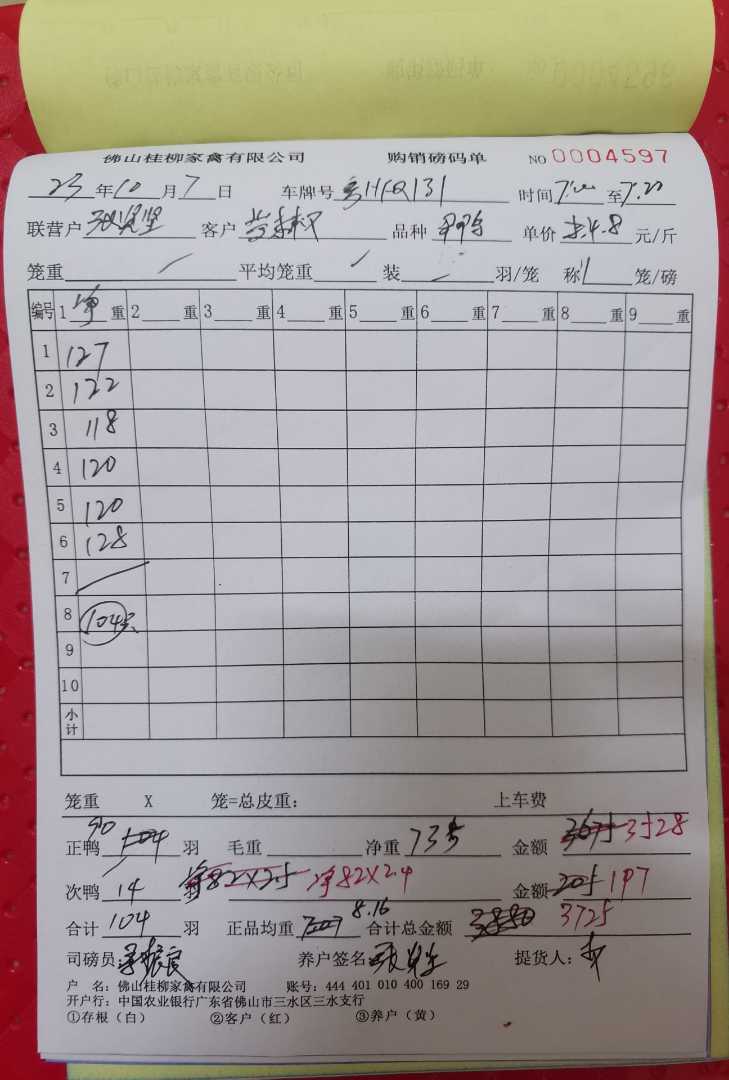 佛山桂柳家禽有限公司 购销磅码单 NO 0004597
23年10月7日 车牌号 粤HFQ131 时间 至7:20
联营户 客户 品种 单价 4.8 元/斤
笼重 平均笼重 装 羽/笼 称 笼/磅
编号 1 净 重 2 重 3 重 4 重 5 重 6 重 7 重 8 重 9 重
1 127
2 122
3 118
4 120
5 120
6 128
7
8 104只
9
10
小计
笼重 X 笼=总皮重: 上车费
正鸭 90 104 羽 毛重 净重 735 金额 3675 3528
次鸭 14 羽 净82×2.5 净82×2.4 金额 205 197
合计 104 羽 正品均重 8.16 合计总金额 3880 3725
司磅员: 养户签名: 提货人:
户 名: 佛山桂柳家禽有限公司 账号: 444 401 010 400 169 29
开户行: 中国农业银行广东省佛山市三水区三水支行
①存根(白) ②客户(红) ③养户(黄)